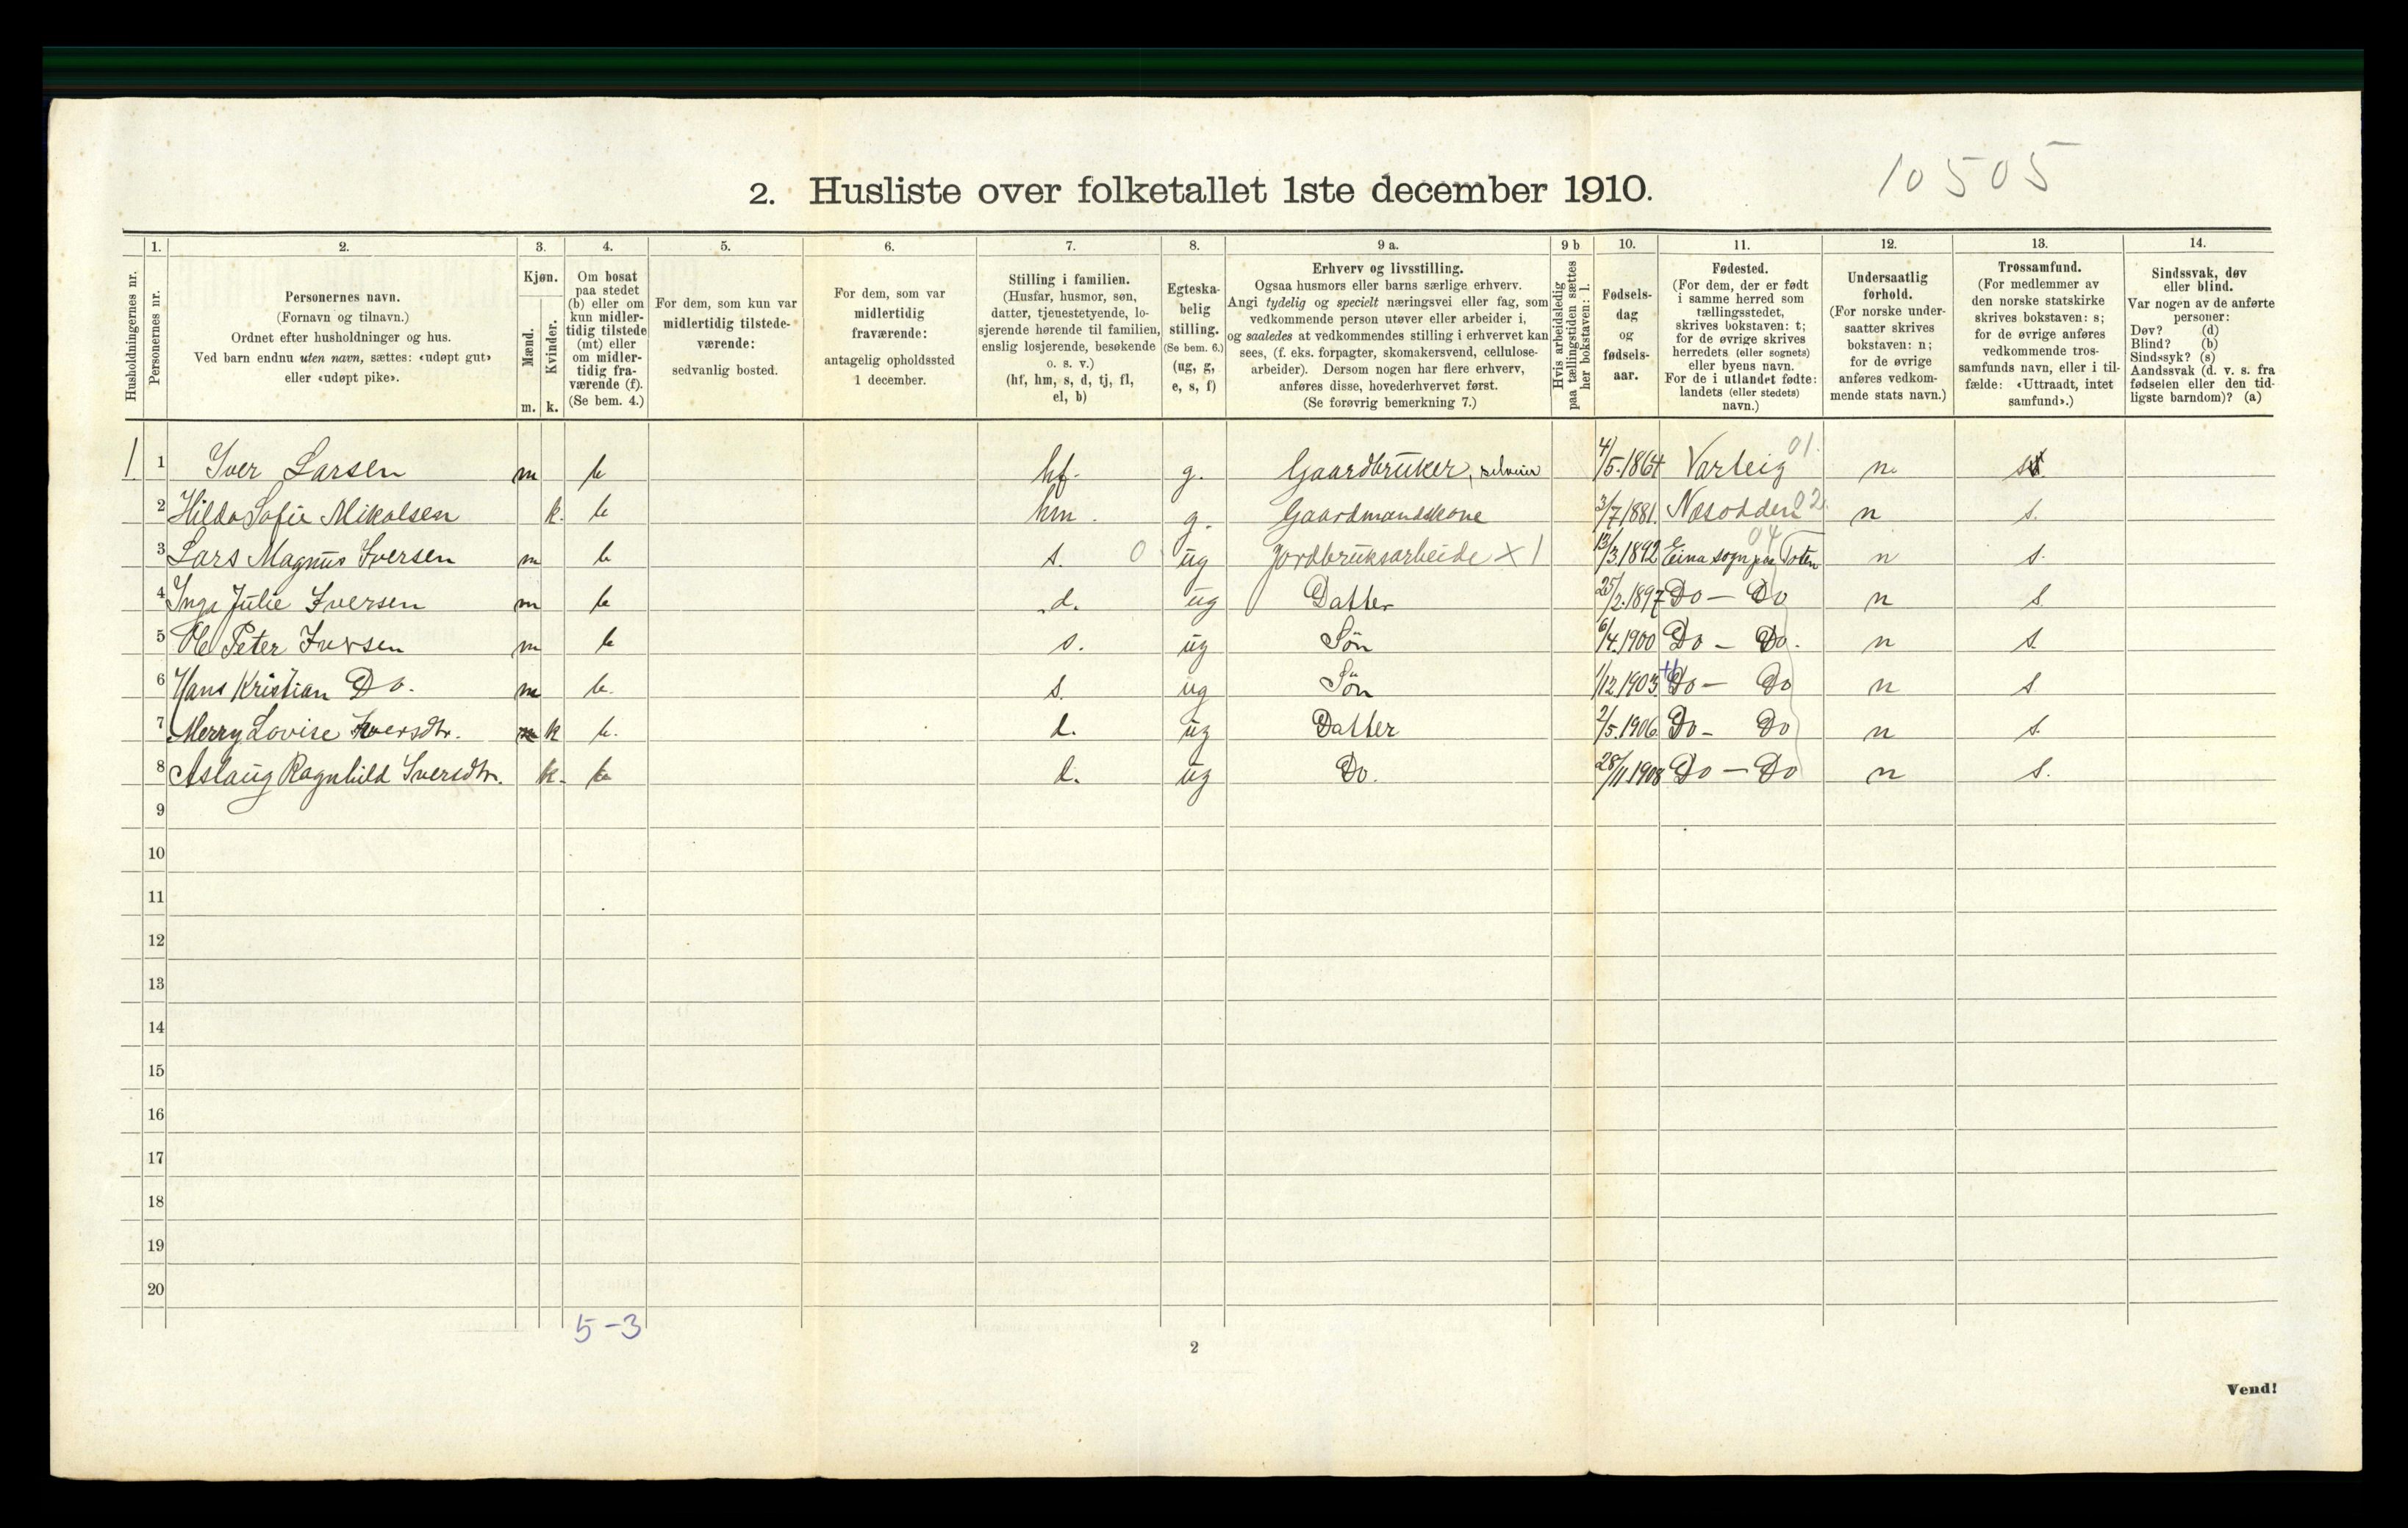 10505
2. Husliste over folketallet 1ste december 1910.
1. 2. 3. 4. 5. 6. 7. 8. 9 a. 9 b 10. 11. 12. 13. 14.
Husholdningernes nr.
Personernes nr.
Personernes navn.
(Fornavn og tilnavn.)
Ordnet efter husholdninger og hus.
Ved barn endnu uten navn, sættes: «udøpt gut»
eller «udøpt pike».
Kjøn.
Mænd.
Kvinder.
m. k.
Om bosat
paa stedet
(b) eller om
kun midler-
tidig tilstede
(mt) eller
om midler-
tidig fra-
værende (f).
(Se bem. 4.)
For dem, som kun var
midlertidig tilstede-
værende:
sedvanlig bosted.
For dem, som var
midlertidig
fraværende:
antagelig opholdssted
1 december.
Stilling i familien.
(Husfar, husmor, søn,
datter, tjenestetyende, lo-
sjerende hørende til familien,
enslig losjerende, besøkende
o. s. v.)
(hf, hm, s, d, tj, fl,
el, b)
Egteska-
belig
stilling.
(Se bem. 6.)
(ug, g,
e, s, f)
Erhverv og livsstilling.
Ogsaa husmors eller barns særlige erhverv.
Angi tydelig og specielt næringsvei eller fag, som
vedkommende person utøver eller arbeider i,
og saaledes at vedkommendes stilling i erhvervet kan
sees, (f. eks. forpagter, skomakersvend, cellulose-
arbeider). Dersom nogen har flere erhverv,
anføres disse, hovederhvervet først.
(Se forøvrig bemerkning 7.)
Hvis arbeidsledig
paa tællingstiden sættes
her bokstaven: l.
Fødsels-
dag
og
fødsels-
aar.
Fødested.
(For dem, der er født
i samme herred som
tællingsstedet,
skrives bokstaven: t;
for de øvrige skrives
herredets (eller sognets)
eller byens navn.
For de i utlandet fødte:
landets (eller stedets)
navn.)
Undersaatlig
forhold.
(For norske under-
saatter skrives
bokstaven: n;
for de øvrige
anføres vedkom-
mende stats navn.)
Trossamfund.
(For medlemmer av
den norske statskirke
skrives bokstaven: s;
for de øvrige anføres
vedkommende tros-
samfunds navn, eller i til-
fælde: «Uttraadt, intet
samfund».)
Sindssvak, døv
eller blind.
Var nogen av de anførte
personer:
Døv? (d)
Blind? (b)
Sindssyk? (s)
Aandssvak (d. v. s. fra
fødselen eller den tid-
ligste barndom)? (a)
1 1 Iver Larsen m b hf. g. Gaardbruker, selveier 4/5.1864 Varteig 01. n. s.
2 Hilda Sofie Mikalsen k. b hm. g. Gaardmandskone 3/7 1881. Næsodden 02. n s.
3 Lars Magnus Iversen m b s. 0 ug Jordbruksarbeide X 1 13/3 1892 Eina sogn paa Toten 04 n s.
4 Inga Julie Iversen m b d. ug Datter 25/2.1897 Do — Do n s.
5 Ole Peter Iversen m b s. ug Søn 6/4.1900 Do — Do. n s.
6 Hans Kristian Do. m b. s. ug Søn 1/12 1903 Do — Do n s
7 Merry Lovise Iversdtr. k b. d. ug Datter 2/5.1906. Do — Do n s.
8 Aslaug Ragnhild Iversdtr. k. b d. ug Do. 28/11 1908 Do — Do n s.
9
10
11
12
13
14
15
16
17
18
19
20
5-3
2
Vend!